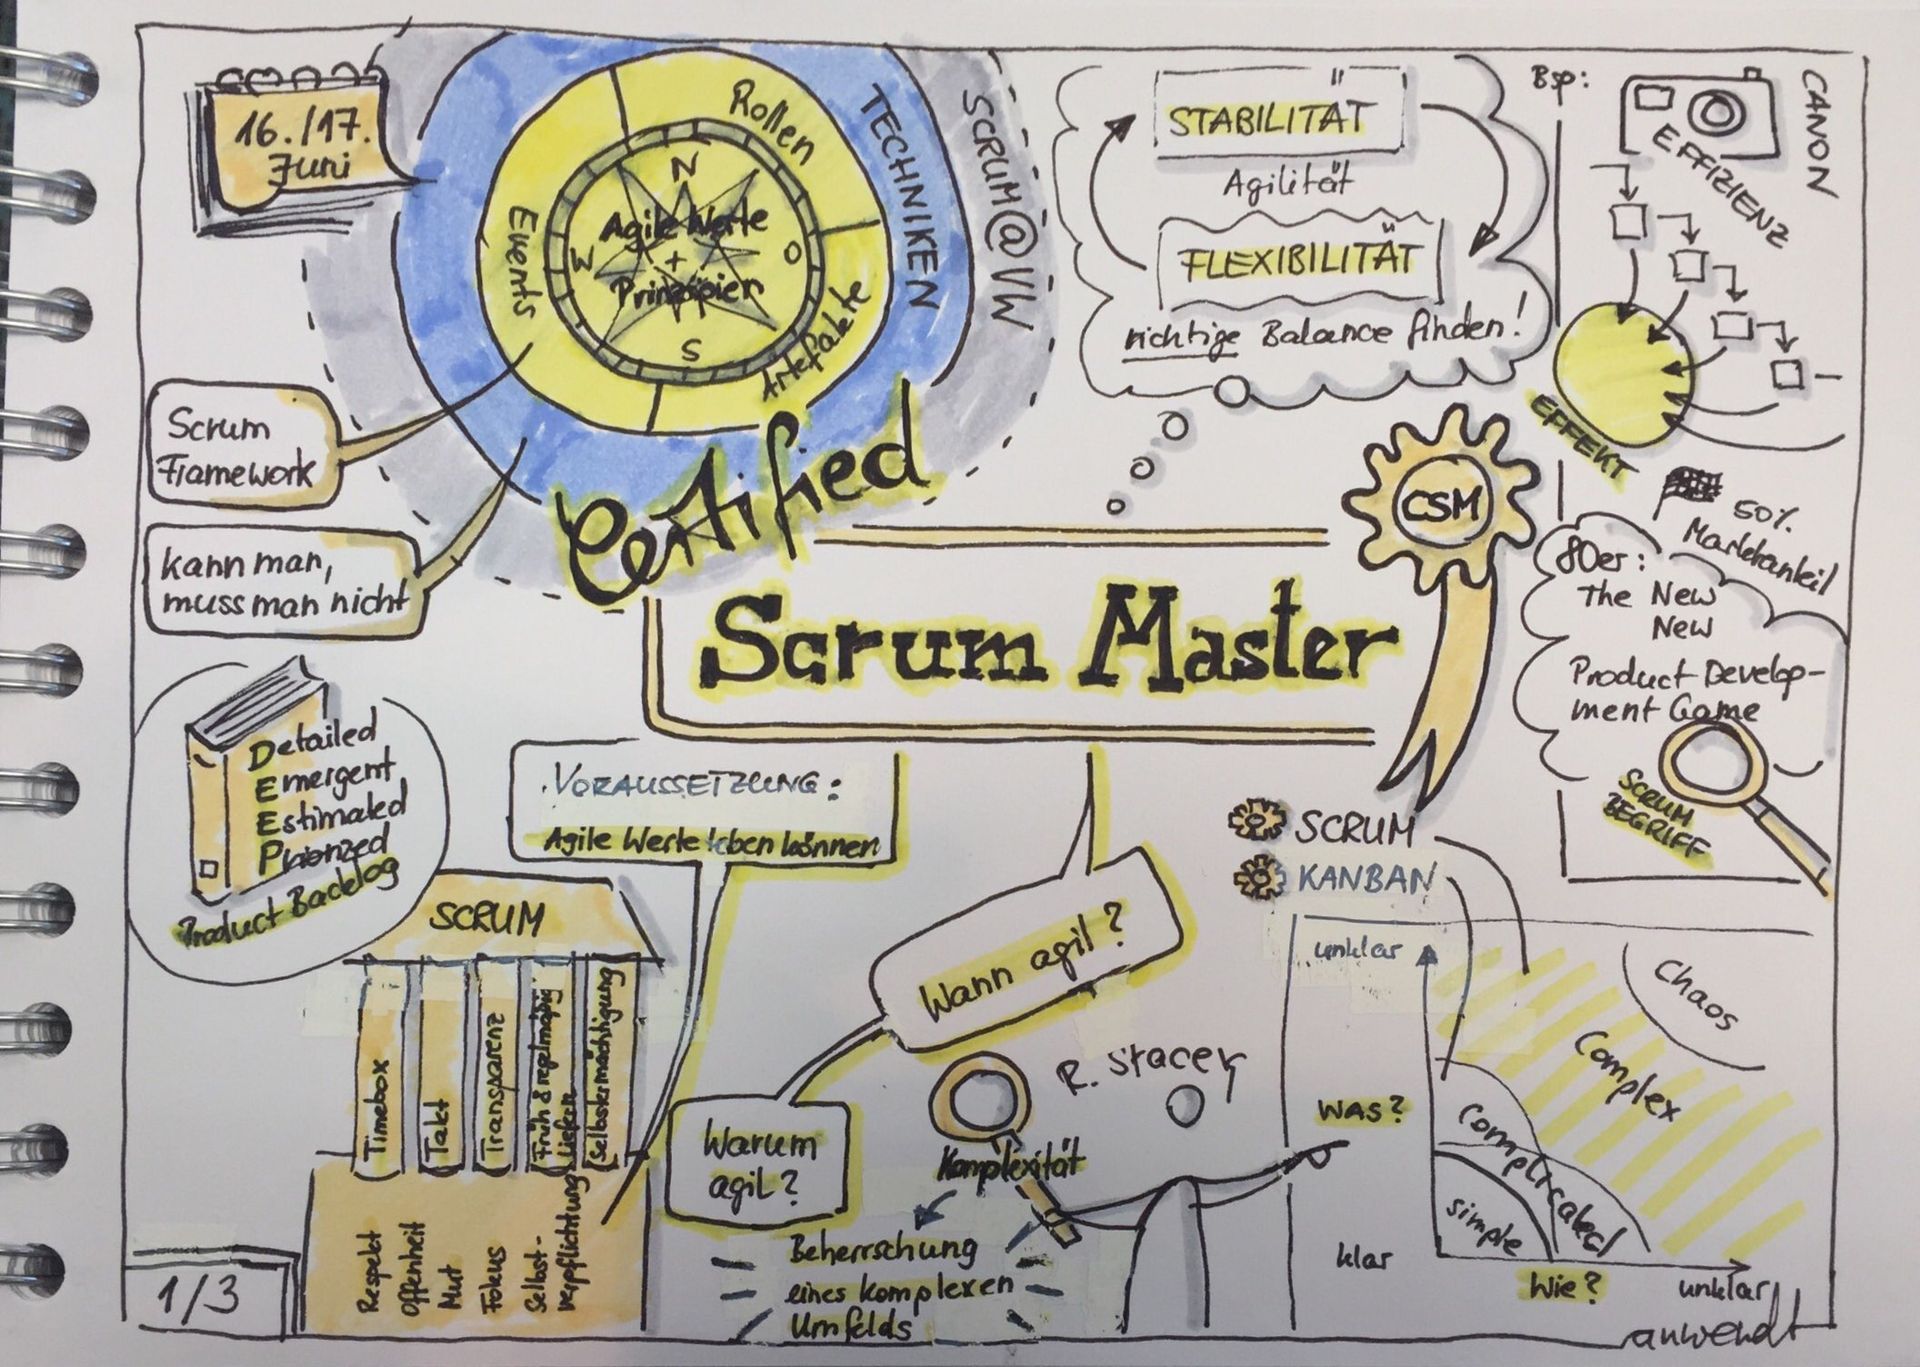 16./17.
Juni
Rollen
TECHNIKEN
SCRUM@VW
Events
Artefakte
N
O
S
W
Agile Werte
+
Prinzipien
Scrum
Framework
kann man,
muss man nicht
STABILITÄT
Agilität
FLEXIBILITÄT
richtige Balance finden!
Bsp:
CANON
EFFIZIENZ
EFFEKT
50%
Marktanteil
Certified
Scrum Master
CSM
80er:
The New
New
Product Develop-
ment Game
SCRUM
BEGRIFF
Detailed
Emergent
Estimated
Priorized
Product Backlog
VORAUSSETZUNG:
Agile Werte leben können
SCRUM
Timebox
Takt
Transparenz
Früh & regelmäßig
Liefern
Selbstermächtigung
Respekt
Offenheit
Mut
Fokus
Selbst-
verpflichtung
Wann agil?
Warum
agil?
R. Stacey
Komplexität
Beherrschung
eines komplexen
Umfelds
SCRUM
KANBAN
unklar
WAS?
klar
Chaos
Complex
Complicated
simple
Wie?
unklar
anwendt
1/3